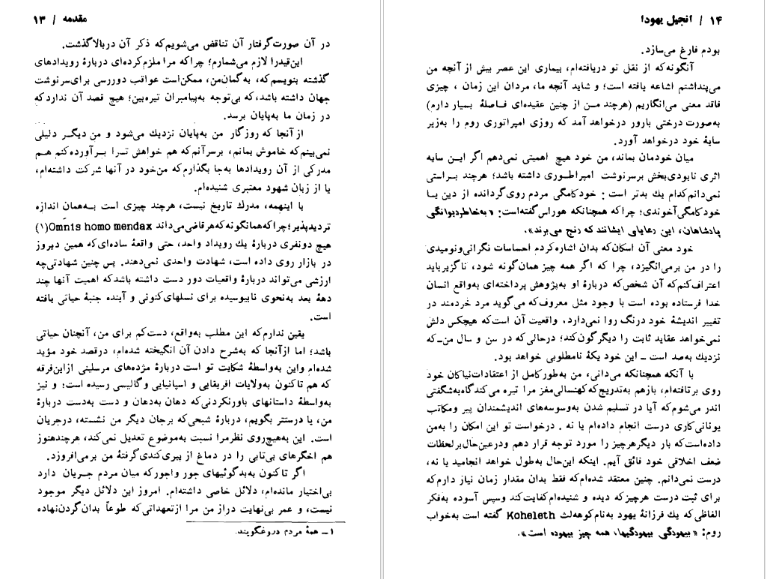 مقدمه / ۱۳
در آن صورت گرفتار آن تناقض می‌شویم که ذکر آن دربالا گذشت.
این‌قیدرا لازم می‌شمارم؛ چراکه مرا ملزم کرده‌ای دربارهٔ رویدادهای
گذشته بنویسم که، به‌گمان‌من، ممکن‌است عواقب دوررسی برای سرنوشت
جهان داشته باشد، که بی‌توجه به‌پیامبران تیره‌بین؛ هیچ قصد آن ندارد که
در زمان ما به‌پایان برسد.
از آنجا که روزگار من به‌پایان نزدیك می‌شود و من دیگر دلیلی
نمی‌بینم‌که خاموش بمانم، برسرآنم‌که هم خواهش ترا برآورده کنم هم
مدرکی از آن رویدادها به‌جا بگذارم که من‌خود در آنها شرکت داشته‌ام،
یا از زبان شهود معتبری شنیده‌ام.
با اینهمه، مدرك تاریخ نیست، هرچند چیزی است به‌همان اندازه
تردیدپذیر؛ چراکه همانگونه‌که هر قاضی می‌داند Omnis homo mendax(۱)
هیچ دونفری دربارهٔ یك رویداد واحد، حتی واقعهٔ ساده‌ای‌که همین دیروز
در بازار روی داده است، شهادت واحدی نمی‌دهند. پس چنین شهادتی‌چه
ارزشی می‌تواند دربارهٔ واقعیات دور دست داشته باشدکه اهمیت آنها چند
دههٔ بعد به‌نحوی نابیوسیده برای نسلهای‌کنونی و آینده جنبهٔ حیاتی یافته
است.
یقین ندارم‌که این مطلب به‌واقع، دست‌کم برای من، آنچنان حیاتی
باشد؛ اما ازآنجا که به‌شرح دادن آن انگیخته شده‌ام، درقصد خود مؤید
شده‌ام واین به‌واسطهٔ شکایت تو است دربارهٔ مژده‌های مرسلینی ازاین‌فرقه
که هم تاکنون به‌ولایات افریقایی و اسپانیایی وگالیسی رسیده است؛ و نیز
به‌واسطهٔ داستانهای باورنکردنی‌که دهان به‌دهان و دست به‌دست دربارهٔ
من، یا درستتر بگویم، دربارهٔ شبحی‌که برجان دیگر من نشسته، درجریان
است. این به‌هیچ‌روی نظرمرا نسبت به‌موضوع تعدیل نمی‌کند، هرچندهنوز
هم اخگرهای بی‌تابی را در دماغ از پیری‌کندی‌گرفتهٔ من برمی‌افروزد.
اگر تاکنون به‌بدگوئیهای جور واجورکه میان مردم جریان دارد
بی‌اختیار مانده‌ام، دلائل خاصی داشته‌ام. امروز این دلائل دیگر موجود
نیست، و عمر بی‌نهایت دراز من مرا ازتعهداتی‌که طوعاً بدان گردن‌نهاده
۱ – همهٔ مردم دروغگویند.
۱۴ / انجیل یهودا
بودم فارغ می‌سازد.
آنگونه‌که از نقل تو دریافته‌ام، بیماری این عصر بیش از آنچه من
می‌پنداشتم اشاعه یافته است؛ و شاید آنچه ما، مردان این زمان ، چیزی
فاقد معنی می‌انگاریم (هرچند من از چنین عقیده‌ای فاصلهٔ بسیار دارم)
به‌صورت درختی بارور درخواهد آمد که روزی امپراتوری روم را به‌زیر
سایهٔ خود درخواهد آورد.
میان خودمان بماند، من خود هیچ اهمیتی نمی‌دهم اگر این سایه
اثری نابودی‌بخش برسرنوشت امپراطوری داشته باشد؛ هرچند براستی
نمی‌دانم‌کدام یك بدتر است : خودکامگی مردم روی‌گردانده از دین یا
خودکامگی‌آخوندی؛ چراکه همچنانکه هوراس‌گفته‌است: «به‌خاطردیوانگی
پادشاهان، این رعایایی ایشانند که رنج می‌برند».
خود معنی آن امکان‌که بدان اشاره‌کردم احساسات نگرانی‌ونومیدی
را در من برمی‌انگیزد، چرا که اگر همه چیز همان‌گونه شود، ناگزیرباید
اعتراف‌کنم‌که آن شخص‌که دربارهٔ او به‌پژوهش پرداخته‌ای به‌واقع انسان
خدا فرستاده بوده است با وجود مثل معروف‌که می‌گوید مرد خردمند در
تغییر اندیشهٔ خود درنگ روا نمی‌دارد. واقعیت آن است‌که هیچکس دلش
نمی‌خواهد عقاید ثابت را دیگرگون‌کند؛ درحالی‌که در سن و سال من–که
نزدیك به‌صد است – این خود یکهٔ نامطلوبی خواهد بود.
با آنکه همچنانکه می‌دانی، من به‌طورکامل از اعتقادات‌نیاکان خود
روی برتافته‌ام، بازهم به‌تدریج‌که کهنسالی‌مغز مرا تیره می‌کندگاه‌به‌شگفتی
اندر می‌شوم‌که آیا در تسلیم شدن به‌وسوسه‌های اندیشمندان پیر ومکاتب
یونانی‌کاری درست انجام داده‌ام یا نه . درخواست تو این امکان را به‌من
داده‌است‌که بار دیگرهرچیز را مورد توجه قرار دهم ودرعین‌حال‌برلحظات
ضعف اخلاقی خود فائق آیم. اینکه این‌حال به‌طول خواهد انجامید یا نه،
درست نمی‌دانم. چنین معتقد شده‌ام‌که فقط بدان مقدار زمان نیاز دارم‌که
برای ثبت درست هرچیزکه دیده و شنیده‌ام‌کفایت‌کند وسپس آسوده به‌فکر
الفاظی‌که یك فرزانهٔ یهود به‌نام‌کوهه‌لث Koheleth گفته است به‌خواب
روم: «بیهودگی بیهودگیها، همه چیز بیهوده است».